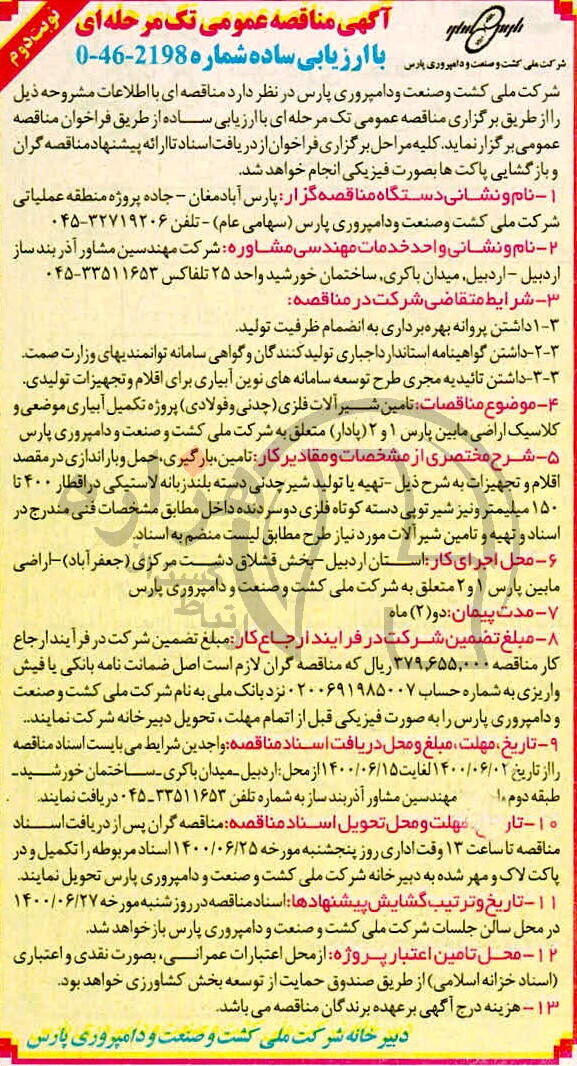 نوبت دوم
آگهی مناقصه عمومی تک مرحله ای
با ارزیابی ساده شماره 2198-46-0
شرکت ملی کشت و صنعت و دامپروری پارس
شرکت ملی کشت وصنعت ودامپروری پارس در نظر دارد مناقصه ای با اطلاعات مشروحه ذیل
را از طریق برگزاری مناقصه عمومی تک مرحله ای با ارزیابی ساده از طریق فراخوان مناقصه
عمومی برگزار نماید. کلیه مراحل برگزاری فراخوان از دریافت اسناد تا ارائه پیشنهاد مناقصه گران
و بازگشایی پاکت ها بصورت فیزیکی انجام خواهد شد.
۱-نام و نشانی دستگاه مناقصه گزار: پارس آبادمغان - جاده پروژه منطقه عملیاتی
شرکت ملی کشت وصنعت ودامپروری پارس (سهامی عام) - تلفن ۳۲۷۱۹۲۰۶-۰۴۵
۲-نام و نشانی واحد خدمات مهندسی مشاوره: شرکت مهندسین مشاور آذر بند ساز
اردبیل - اردبیل، میدان باکری، ساختمان خورشید واحد ۲۵ تلفاکس ۳۳۵۱۱۶۵۳-۰۴۵
۳-شرایط متقاضی شرکت در مناقصه:
۳-۱داشتن پروانه بهره برداری به انضمام ظرفیت تولید.
۳-۲-داشتن گواهینامه استاندارد اجباری تولید کنندگان و گواهی سامانه توانمندیهای وزارت صمت.
۳-۳-داشتن تائیدیه مجری طرح توسعه سامانه های نوین آبیاری برای اقلام و تجهیزات تولیدی.
۴-موضوع مناقصات: تامین شیرآلات فلزی (چدنی وفولادی) پروژه تکمیل آبیاری موضعی و
کلاسیک اراضی مابین پارس ۱ و ۲ (پادار) متعلق به شرکت ملی کشت و صنعت و دامپروری پارس
۵-شرح مختصری از مشخصات و مقادیر کار: تامین، بارگیری، حمل و باراندازی در مقصد
اقلام و تجهیزات به شرح ذیل -تهیه یا تولید شیر چدنی دسته بلند زبانه لاستیکی دراقطار ۴۰۰ تا
۱۵۰ میلیمتر ونیز شیر توپی دسته کوتاه فلزی دوسر دنده داخل مطابق مشخصات فنی مندرج در
اسناد و تهیه و تامین شیرآلات مورد نیاز طرح مطابق لیست منضم به اسناد.
۶-محل اجرای کار: استان اردبیل-بخش قشلاق دشت مرکزی (جعفرآباد)-اراضی
مابین پارس ۱ و ۲ متعلق به شرکت ملی کشت و صنعت و دامپروری پارس
۷-مدت پیمان: دو (۲) ماه
۸-مبلغ تضمین شرکت در فرایند ارجاع کار: مبلغ تضمین شرکت در فرآیند ارجاع
کار مناقصه ۲۷۹,۶۵۵,۰۰۰ ریال که مناقصه گران لازم است اصل ضمانت نامه بانکی یا فیش
واریزی به شماره حساب ۰۲۰۰۶۹۱۹۸۵۰۰۷ نزد بانک ملی به نام شرکت ملی کشت و صنعت
و دامپروری پارس را به صورت فیزیکی قبل از اتمام مهلت، تحویل دبیرخانه شرکت نمایند..
۹-تاریخ، مهلت، مبلغ و محل دریافت اسناد مناقصه: واجدین شرایط می بایست اسناد مناقصه
را از تاریخ ۱۴۰۰/۰۶/۰۲ لغایت ۱۴۰۰/۰۶/۱۵ از محل: اردبیل-میدان باکری-ساختمان خورشید-
طبقه دوم مهندسین مشاور آذربند ساز به شماره تلفن ۳۳۵۱۱۶۵۳-۰۴۵ دریافت نمایند.
۱۰-تاریخ، مهلت و محل تحویل اسناد مناقصه: مناقصه گران پس از دریافت اسناد
مناقصه تا ساعت ۱۳ وقت اداری روز پنجشنبه مورخه ۱۴۰۰/۰۶/۲۵ اسناد مربوطه را تکمیل و در
پاکت لاک و مهر شده به دبیرخانه شرکت ملی کشت و صنعت و دامپروری پارس تحویل نمایند.
۱۱-تاریخ و ترتیب گشایش پیشنهادها: اسناد مناقصه در روز شنبه مورخه ۱۴۰۰/۰۶/۲۷
در محل سالن جلسات شرکت ملی کشت و صنعت و دامپروری پارس باز خواهد شد.
۱۲-محل تامین اعتبار پروژه: از محل اعتبارات عمرانی، بصورت نقدی و اعتباری
(اسناد خزانه اسلامی) از طریق صندوق حمایت از توسعه بخش کشاورزی خواهد بود.
۱۳-هزینه درج آگهی بر عهده برندگان مناقصه می باشد.
دبیرخانه شرکت ملی کشت و صنعت و دامپروری پارس